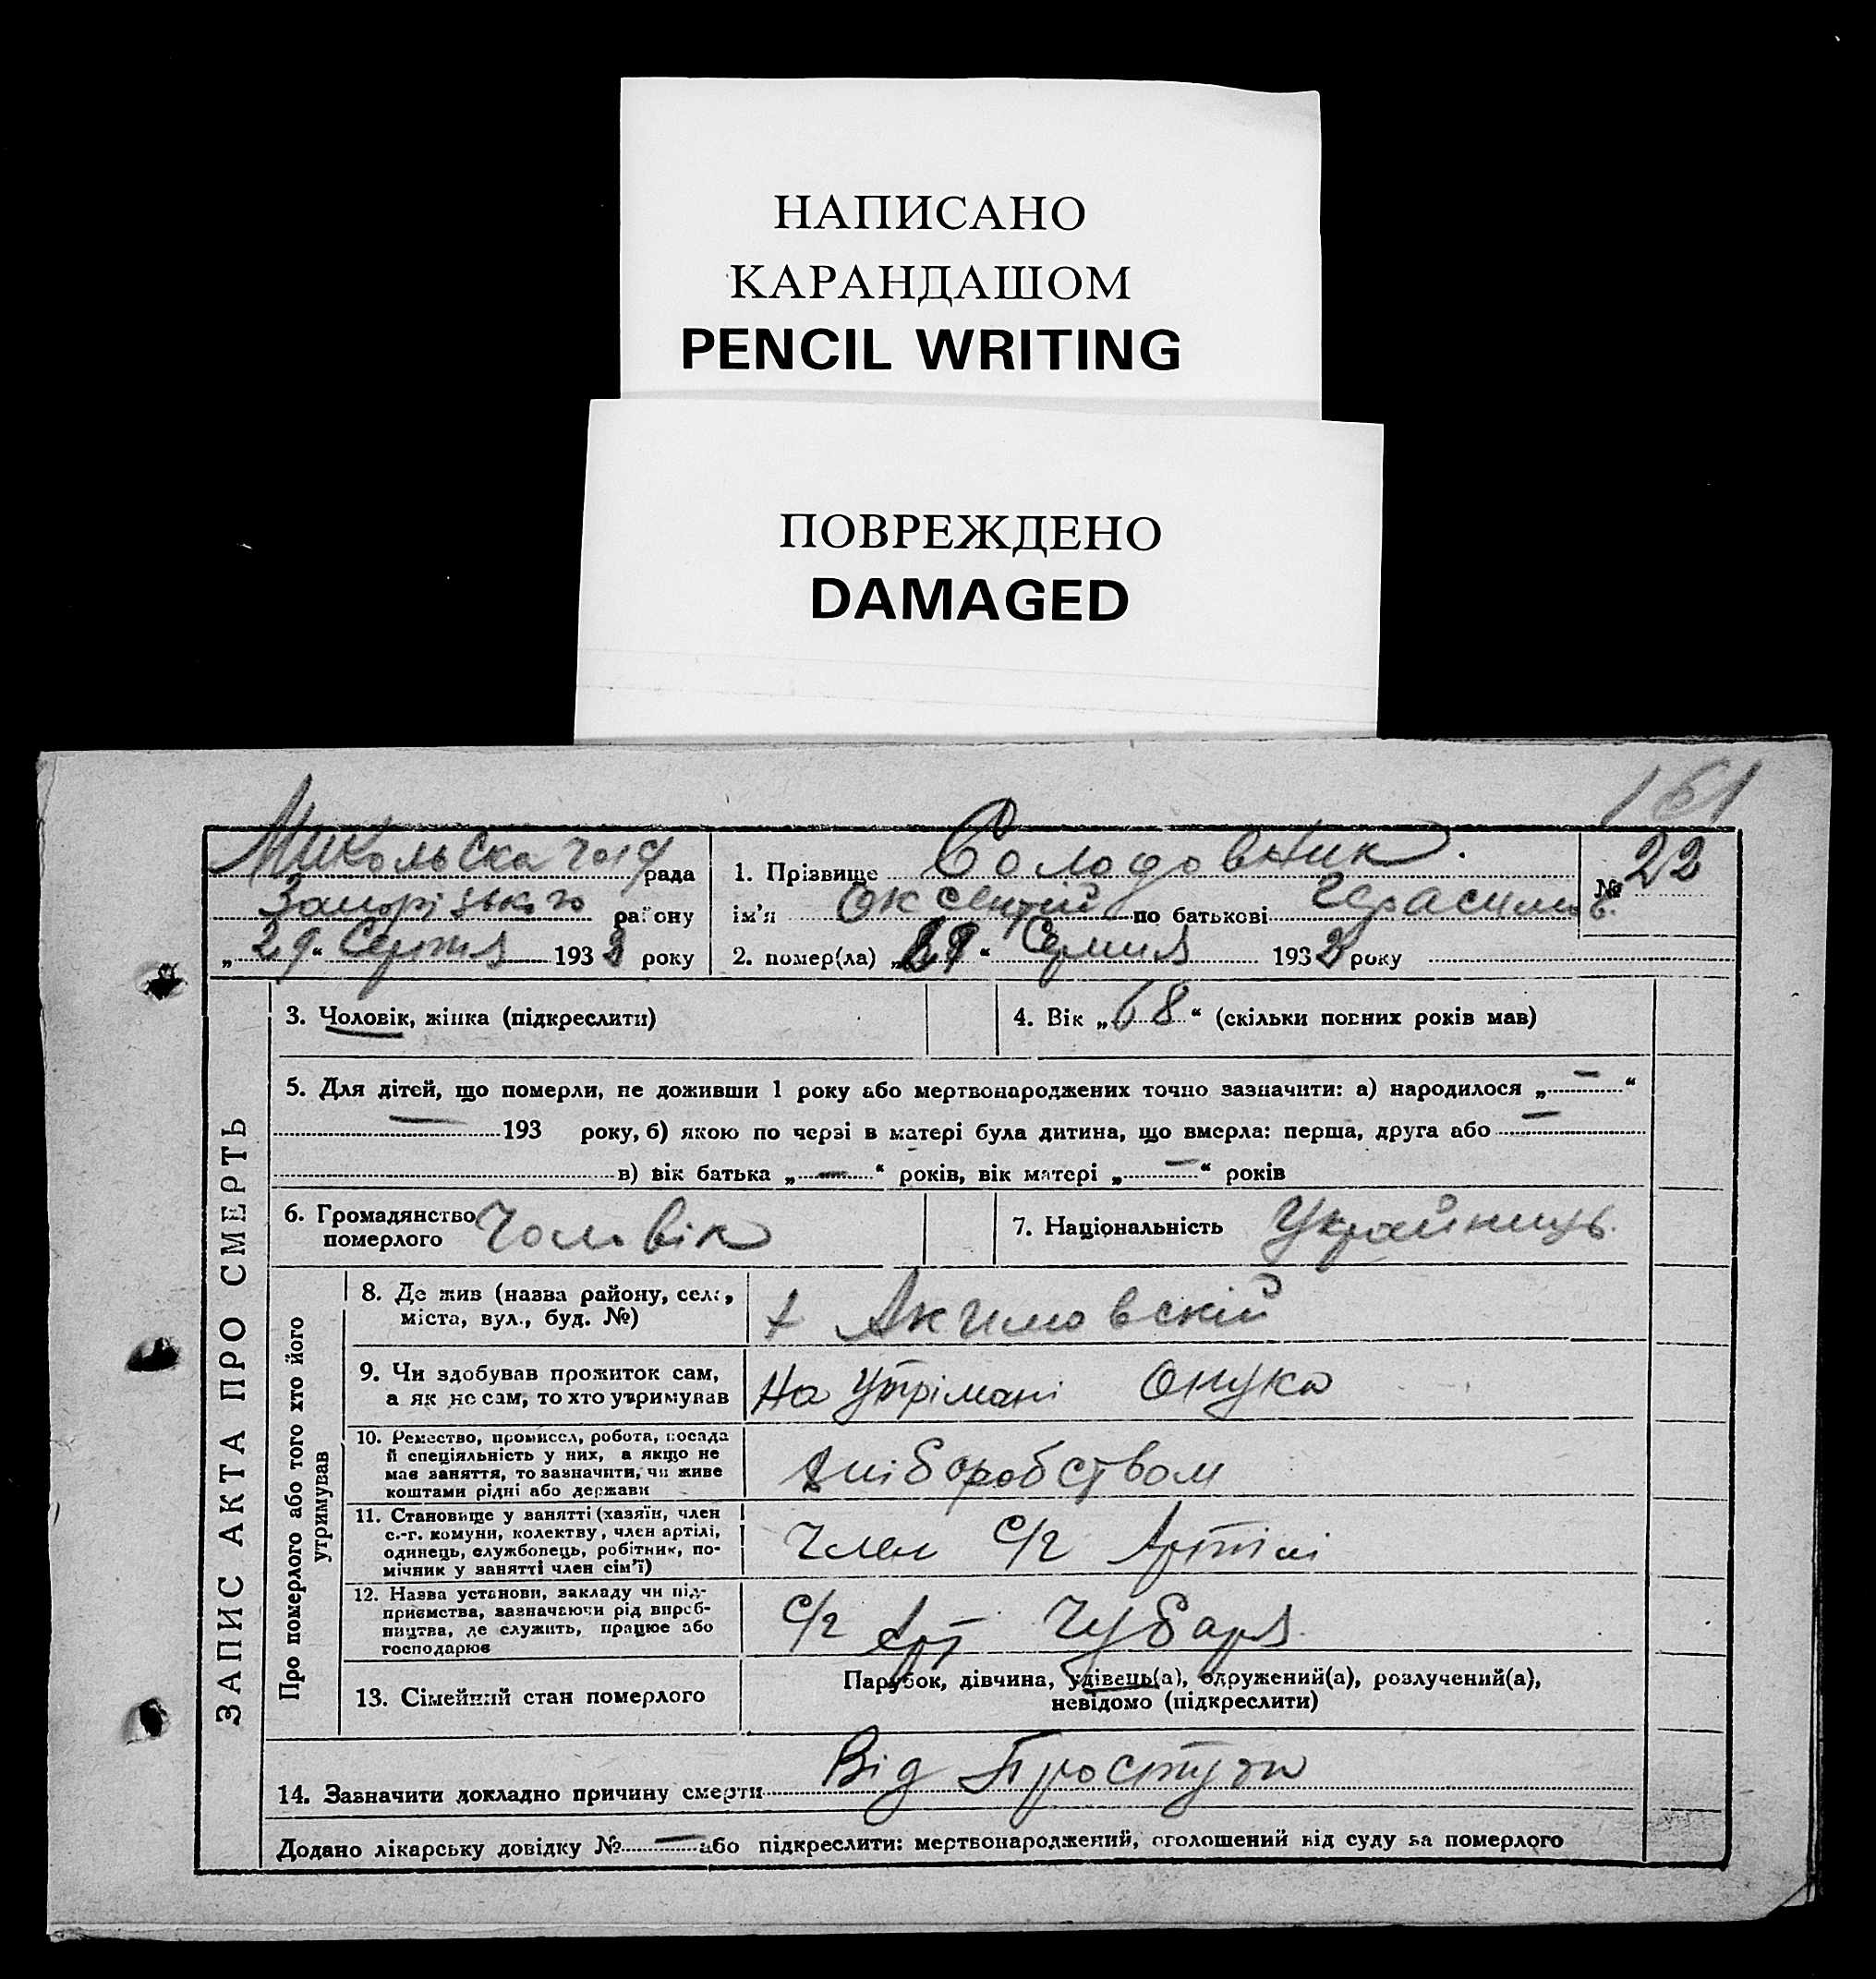 НАПИСАНО
КАРАНДАШОМ
PENCIL WRITING
ПОВРЕЖДЕНО
DAMAGED
161
Микольска рада
Запорізького району
„29“ Серпня 1932 року
1. Прізвище Солодовник.
ім'я Оксентій по батькові Герасимов.
№ 22
2. помер(ла) „29“ Серпня 1932 року
ЗАПИС АКТА ПРО СМЕРТЬ
3. Чоловік, жінка (підкреслити)
4. Вік „68“ (скільки повних років мав)
5. Для дітей, що померли, не доживши 1 року або мертвонароджених точно зазначити: а) народилося „—“
— 193 року, б) якою по черзі в матері була дитина, що вмерла: перша, друга або —
в) вік батька „—“ років, вік матері „—“ років
6. Громадянство
померлого Чоловік
7. Національність Українць.
Про померлого або того хто його
утримував
8. Де жив (назва району, села,
міста, вул., буд. №)
х Акимовскій
9. Чи здобував прожиток сам,
а як не сам, то хто утримував
На утрімані Онука
10. Ремество, промисел, робота, посада
й спеціяльність у них, а якщо не
має заняття, то зазначити, чи живе
коштами рідні або держави
хліборобством
11. Становище у занятті (хазяїн, член
с.-г. комуни, колективу, член артілі,
одинець, службовець, робітник, по-
мічник у занятті член сім'ї)
Член с/г Артілі
12. Назва установи, закладу чи під-
приємства, зазначаючи рід вироб-
ництва, де служить, працює або
господарює
с/г Арт Чубаря
13. Сімейний стан померлого
Парубок, дівчина, удівець(а), одружений(а), розлучений(а),
невідомо (підкреслити)
14. Зазначити докладно причину смерти Від Простуди
Додано лікарську довідку № — або підкреслити: мертвонароджений, оголошений від суду за померлого